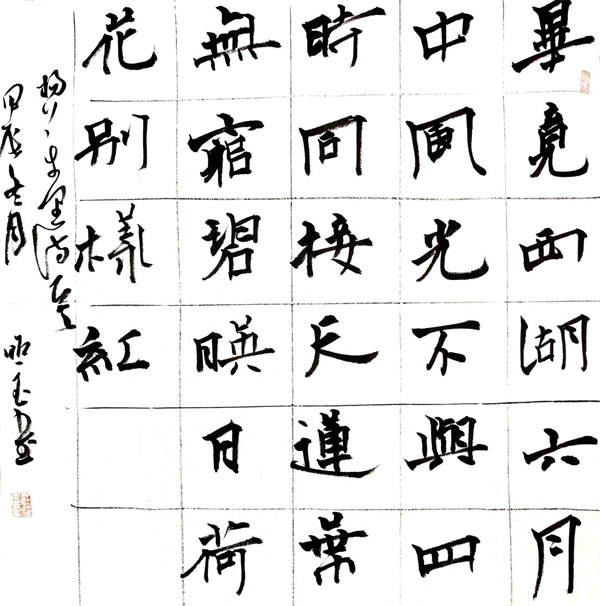 畢竟西湖六月
中風光不與四
時同接天蓮葉
無窮碧暎日荷
花別樣紅
里詩
甲辰冬月